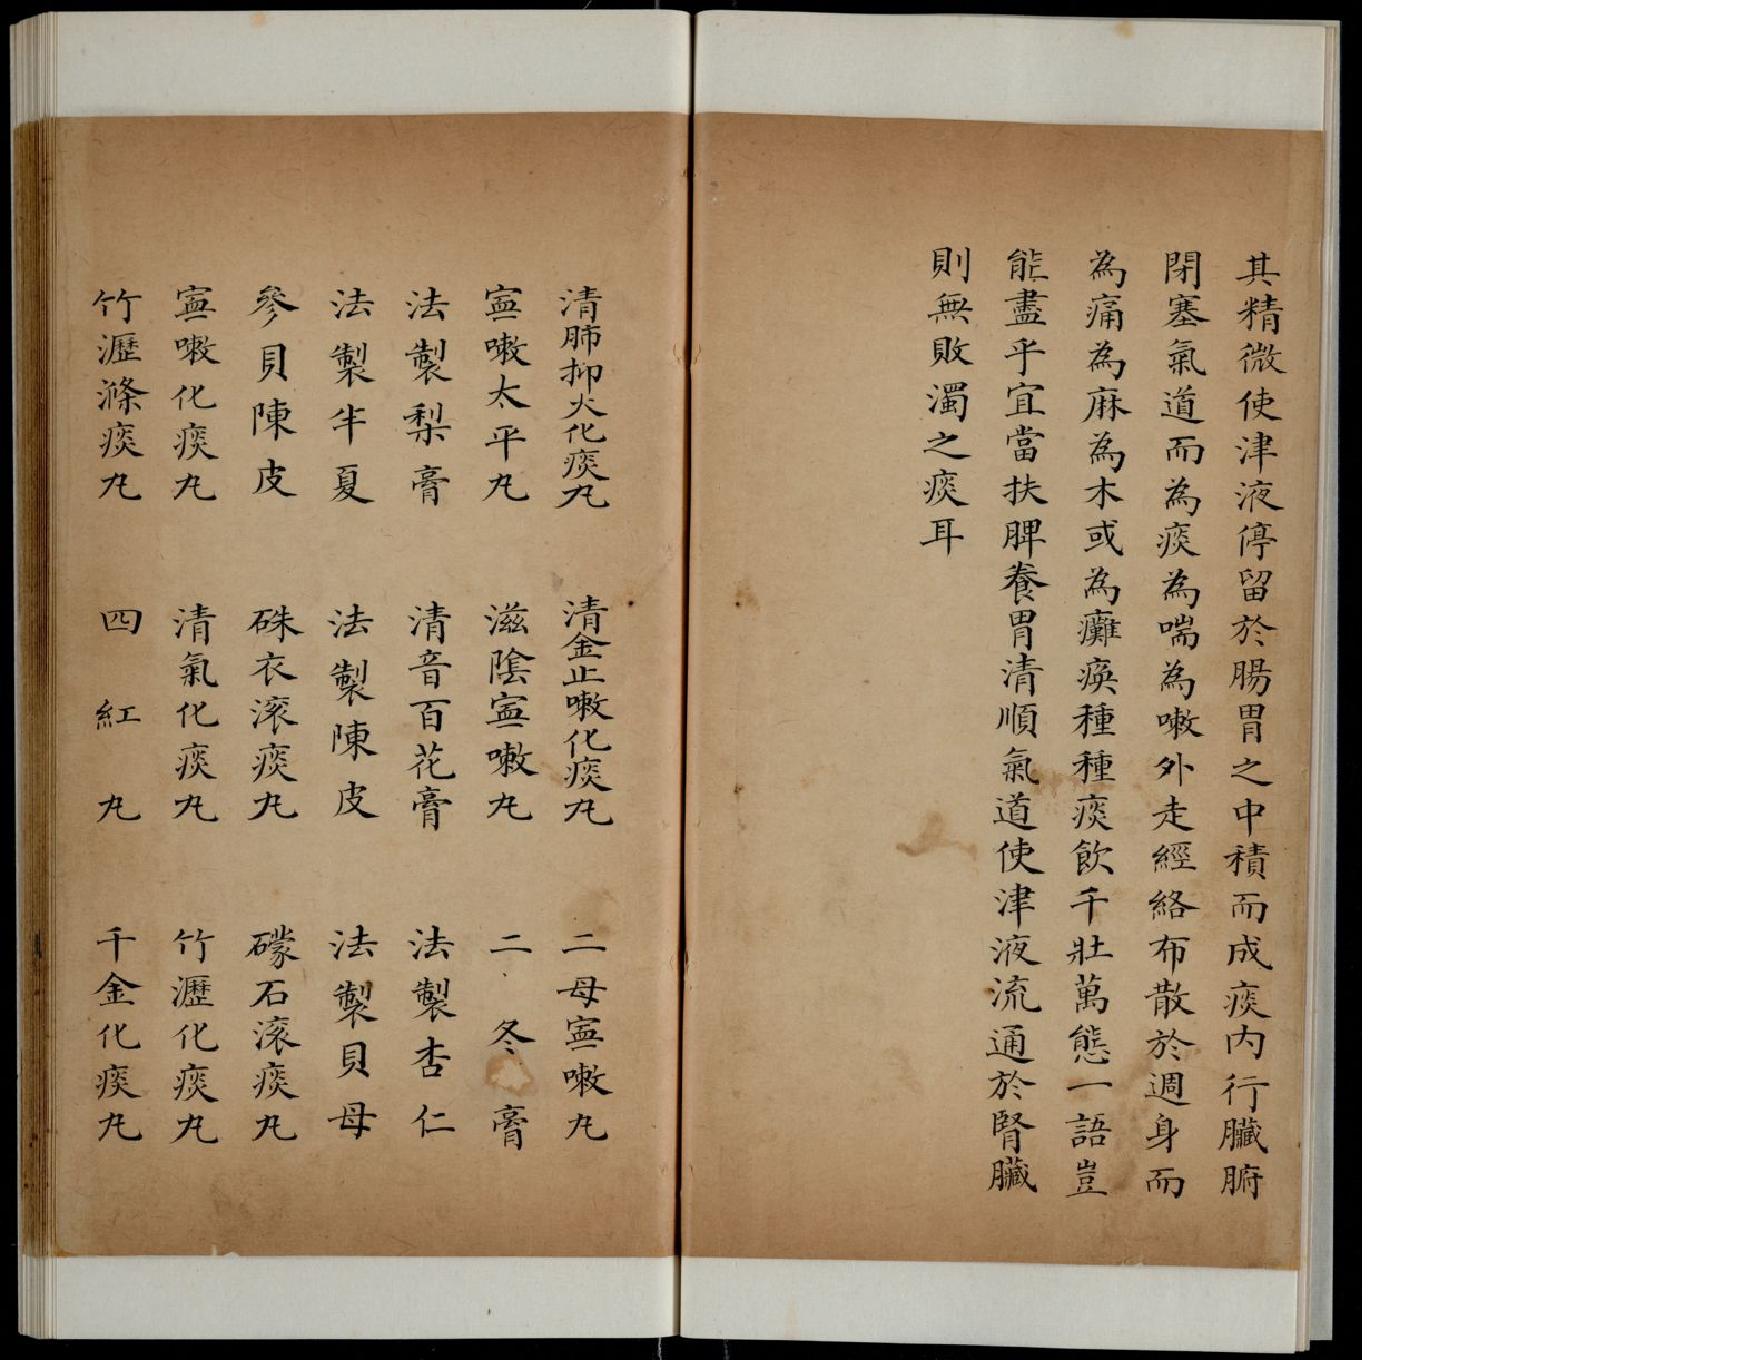 其精微使津液停留於腸胃之中積而成痰内行臟腑
閉塞氣道而為痰為喘為嗽外走經絡布散於週身而
為痛為麻為木或為癱瘓種種痰飲千壯萬態一語豈
能盡乎宜當扶脾養胃清順氣道使津液流通於腎臟
則無敗濁之痰耳
清肺抑火化痰丸 清金止嗽化痰丸 二母寧嗽丸
寧嗽太平丸 滋陰寧嗽丸 二冬膏
法製梨膏 清音百花膏 法製杏仁
法製半夏 法製陳皮 法製貝母
參貝陳皮 硃衣滚痰丸 礞石滚痰丸
寧嗽化痰丸 清氣化痰丸 竹瀝化痰丸
竹瀝滌痰丸 四紅丸 千金化痰丸